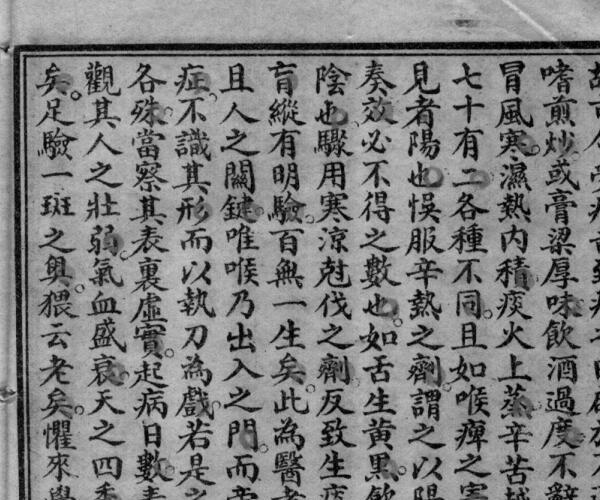 嗜煎炒或膏粱厚味飲酒過度不辭
冒風寒濕熱內積痰火上蒸辛苦
七十有二各種不同。且如喉痺之害
見者陽也悞服辛熱之劑。謂之以陽
奏效必不得之數也。如舌生黃黑。飲
陰也驟用寒涼尅伐之劑反致生
肓縱有明驗。百無一生矣。此為醫者
且人之關鍵。唯喉乃出入之門。而
症。不識其形而以執刀為戲。若是之
各殊。當察其表裏虛實。起病日數
觀其人之壯弱。氣血盛衰。天之四季
矣。足驗一斑之與。猥云老矣。懼來學